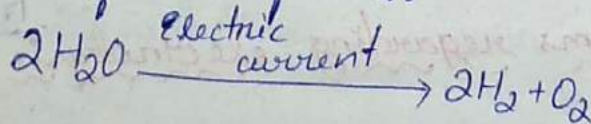 2H₂O Electric current → 2H₂ + O₂